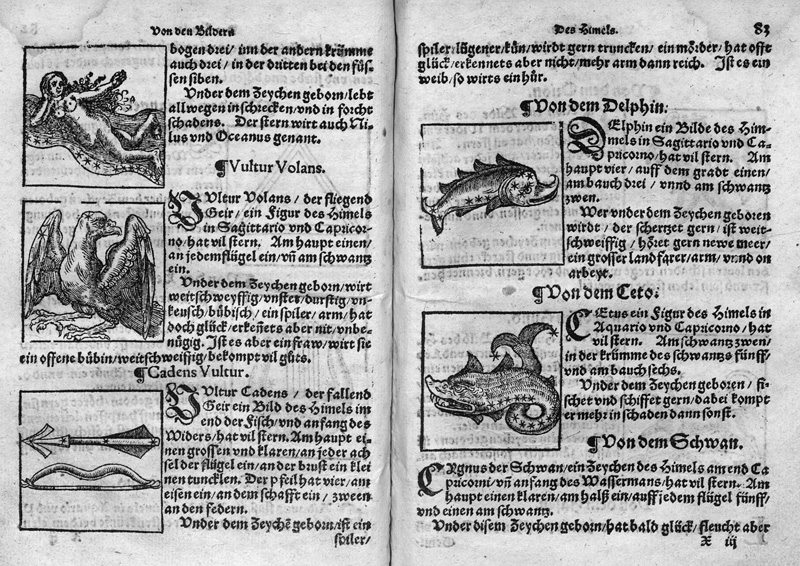 Von den Bildern
bogen drei/ inn der andern krümme
auch drei/ in der dritten bei den füs-
sen siben.
Vnder dem Zeychen geborn/ lebt
allwegen in schrecken/ vnd in forcht
schadens. Der stern wirt auch Ni-
lus vnd Oceanus genant.
¶ Vultur Volans.
VVltur Volans/ der fliegend
Geir/ ein Figur des Himels
in Sagittario vnd Capricor-
no/ hat vil stern. Am haupt einen/
an jedem flügel ein/ vñ am schwantz
ein.
Vnder dem Zeychen geborn/ wirt
weitschweyffig/ vnstet/ durstig/ vn-
keusch/ bübisch/ ein spiler/ arm/ hat
doch glück/ erkeñets aber nit/ vnbe-
nügig. Ist es aber ein fraw/ wirt sie
ein offene bübin/ weitschweiffig/ bekompt vil gůts.
¶ Cadens Vultur.
VVltur Cadens/ der fallend
Geir ein Bild des Himels im
end der Fisch/ vnd anfang des
Widers/ hat vil stern. Am haupt ei-
nen grossen vnd klaren/ an jeder ach
sel der flügel ein/ an der brust ein klei
nen tuncklen. Der pfeil hat vier/ am
eisen ein/ an dem schafft ein/ zween
an den federn.
Vnder dem Zeychē geborn/ ist ein
spiler/
Des Himels. 83
spiler/ lügener/ kün/ wirdt gern truncken/ ein mörder/ hat offt
glück/ erkennets aber nicht/ mehr arm dann reich. Ist es ein
weib/ so wirts ein hůr.
¶ Von dem Delphin.
DElphin ein Bilde des Him-
mels in Sagittario vnd Ca-
pricorno/ hat vil stern. Am
haupt vier/ auff dem gradt einen/
am bauch drei/ vnnd am schwantz
zwen.
Wer vnder dem Zeychen geboren
wirdt/ der schertzet gern/ ist weit-
schweiffig/ höret gern newe meer/
ein grosser landfarer/ arm/ vnnd on
arbeyt.
¶ Von dem Ceto.
CEtus ein Figur des Himels in
Aquario vnd Capricorno/ hat
vil stern. Am schwantz zwen/
in der krümme des schwantzs fünff/
vnd am bauch sechs.
Vnder dem Zeychen geboren/ fi-
schet vnd schiffet gern/ dabei kompt
er mehr in schaden dann sonst.
¶ Von dem Schwan.
CYgnus der Schwan/ ein Zeychen des Himels am end Ca
pricorni/ vñ anfang des Wassermans/ hat vil stern. Am
haupt einen klaren/ am halß ein/ auff jedem flügel fünff/
vnd einen am schwantz.
Vnder disem Zeychen geborn/ hat bald glück/ fleucht aber
X iij